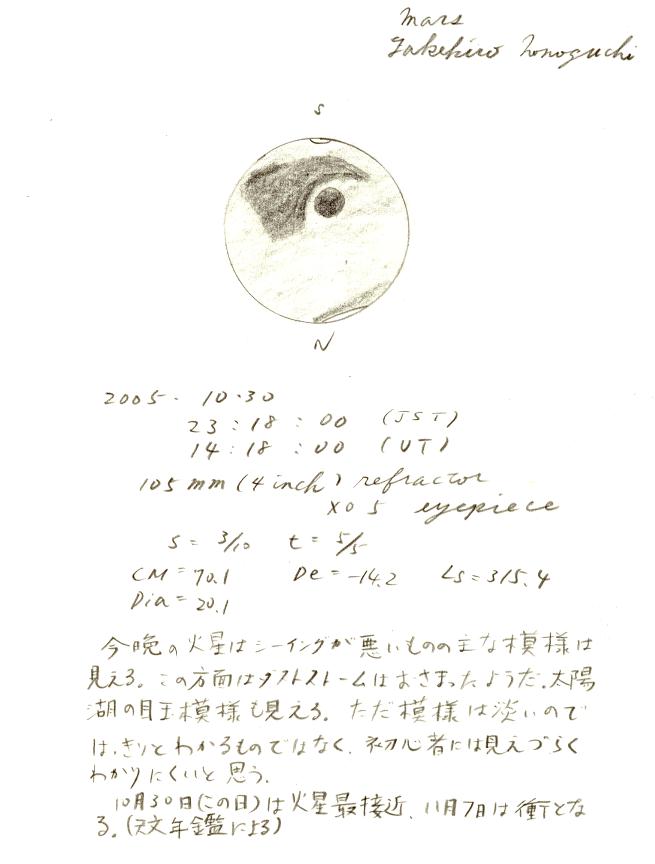 Mars
Takehiro Tonoguchi
S
N
2005. 10.30
23:18:00 (JST)
14:18:00 (UT)
105 mm (4 inch) refractor
XO 5 eyepiece
S = 3/10 t = 5/5
CM = 70.1 De = -14.2 Ls = 315.4
Dia = 20.1
今晩の火星はシーイングが悪いものの主な模様は
見える。この方面はダストストームはおさまったようだ。太陽
湖の目玉模様も見える。ただ模様は淡いので
はっきりとわかるものではなく、初心者には見えづらく
わかりにくいと思う。
10月30日(この日)は火星最接近、11月7日は衝とな
る。(天文年鑑による)